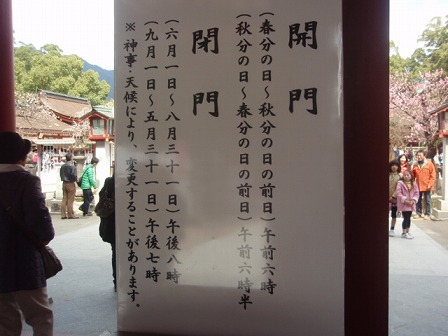 開門
(春分の日～秋分の日の前日)午前六時
(秋分の日～春分の日の前日)午前六時半
閉門
(六月一日～八月三十一日)午後八時
(九月一日～五月三十一日)午後七時
※神事・天候により、変更することがあります。